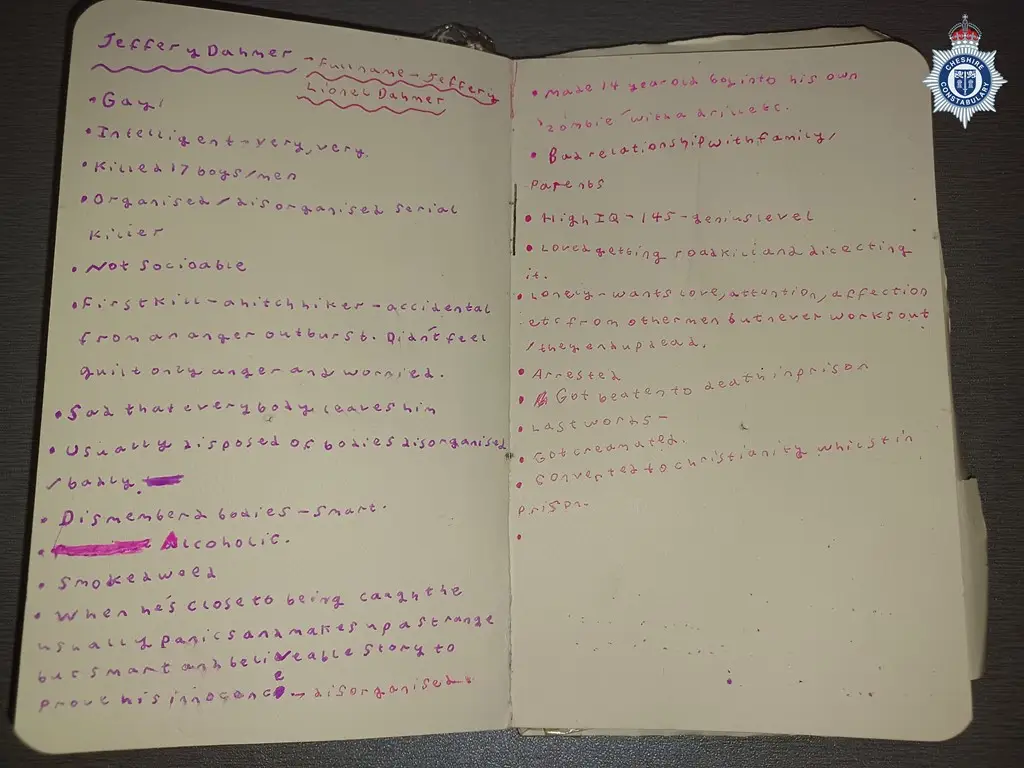 Jeffery Dahmer
- Full name - Jeffery
Lionel Dahmer
• Gay!
• Intelligent - very, very.
• Killed 17 boys/men
• Organised/disorganised serial
killer
• Not socioable
• First kill - a hitchhiker - accidental
from an anger outburst. Didn't feel
guilt only anger and worried.
• Sad that everybody leaves him
• Usually disposed of bodies disorganised
/badly.
• Dismemberd bodies - smart.
• Alcoholic.
• Smoked weed
• When he's close to being caught he
usually panics and makes up a strange
but smart and believeable story to
prove his innocence -> disorganised.
• Made 14 year old boy into his own
'zombie' with a drill etc.
• Bad relationship with family/
parents
• High IQ - 145 - genius level
• Loved getting roadkill and disecting
it.
• Lonely - wants love, attention, affection
ets from other men but never works out
/they end up dead.
• Arrested
• Got beaten to death in prison
• Last words -
• Got creamated.
• Converted to christianity whilst in
prison.
•
CHESHIRE
CONSTABULARY